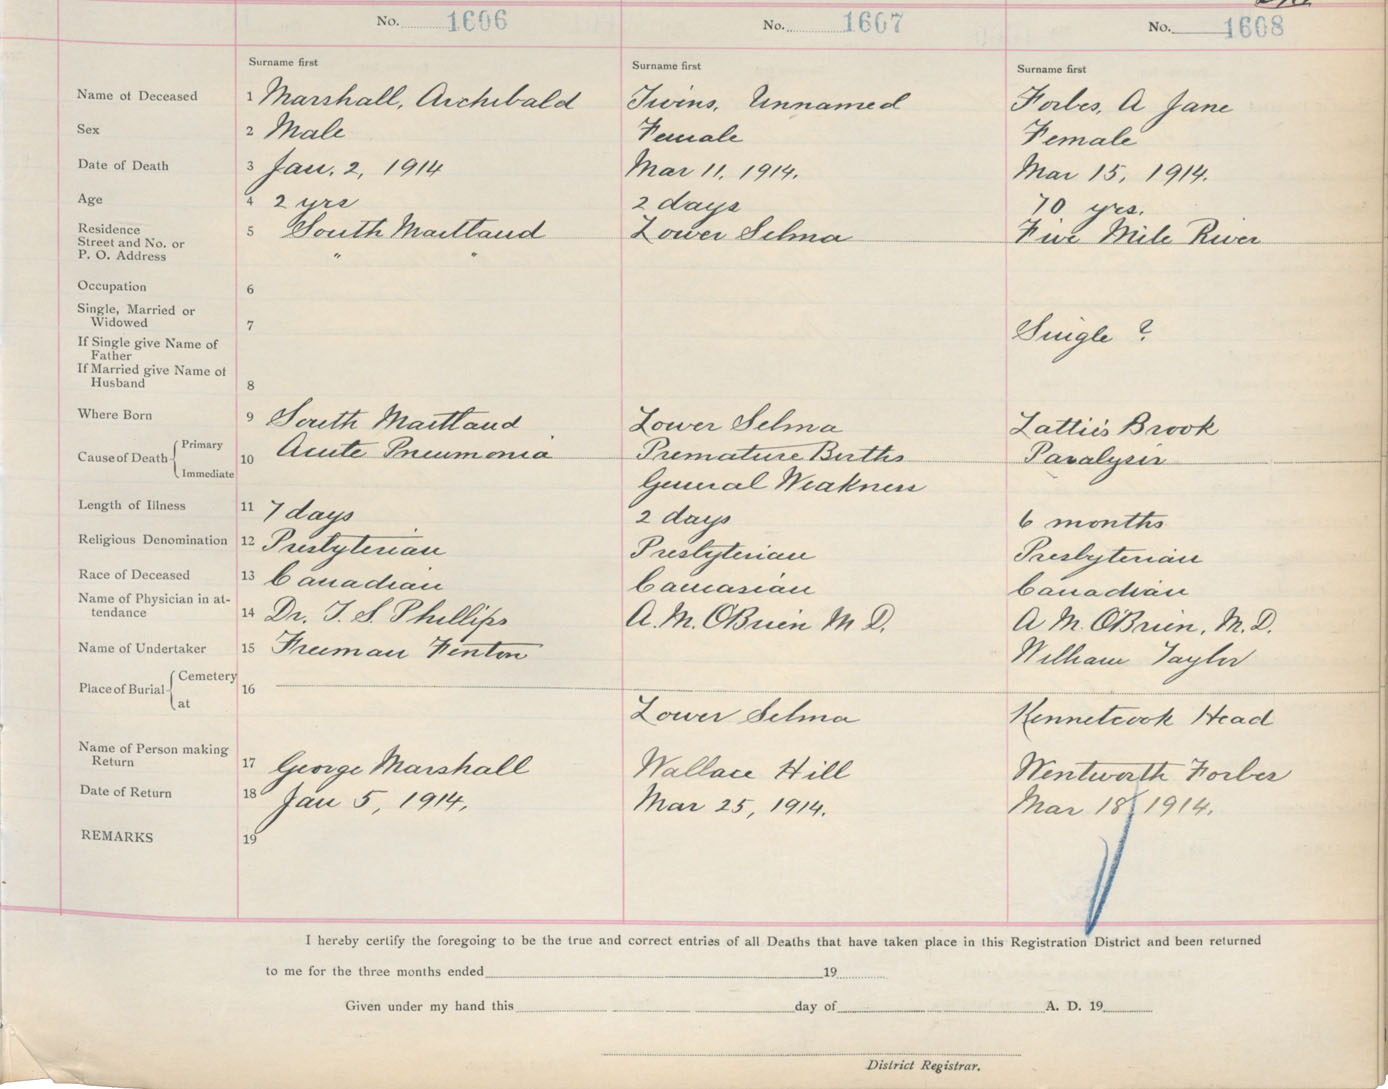 No. 1606 No. 1607 No. 1608
Surname first Surname first Surname first
Name of Deceased 1 Marshall, Archibald Twins, Unnamed Forbes, A Jane
Sex 2 Male Female Female
Date of Death 3 Jan. 2, 1914 Mar 11, 1914. Mar 15, 1914.
Age 4 2 yrs 2 days 70 yrs.
Residence
Street and No. or 5 South Maitland Lower Selma Five Mile River
P. O. Address " "
Occupation 6
Single, Married or
Widowed 7 Single ?
If Single give Name of
Father
If Married give Name of
Husband 8
Where Born 9 South Maitland Lower Selma Lattie's Brook
Cause of Death Primary 10 Acute Pneumonia Premature Births Paralysis
Immediate General Weakness
Length of Illness 11 7 days 2 days 6 months
Religious Denomination 12 Presbyterian Presbyterian Presbyterian
Race of Deceased 13 Canadian Caucasian Canadian
Name of Physician in at-
tendance 14 Dr. T. S. Phillips A. M. O'Brien M D. A M. O'Brien, M. D.
Name of Undertaker 15 Freeman Fenton William Taylor
Place of Burial Cemetery 16
at Lower Selma Kennetcook Head
Name of Person making
Return 17 George Marshall Wallace Hill Wentworth Forbes
Date of Return 18 Jan 5, 1914. Mar 25, 1914. Mar 18, 1914.
REMARKS 19
I hereby certify the foregoing to be the true and correct entries of all Deaths that have taken place in this Registration District and been returned
to me for the three months ended 19
Given under my hand this day of A. D. 19
District Registrar.